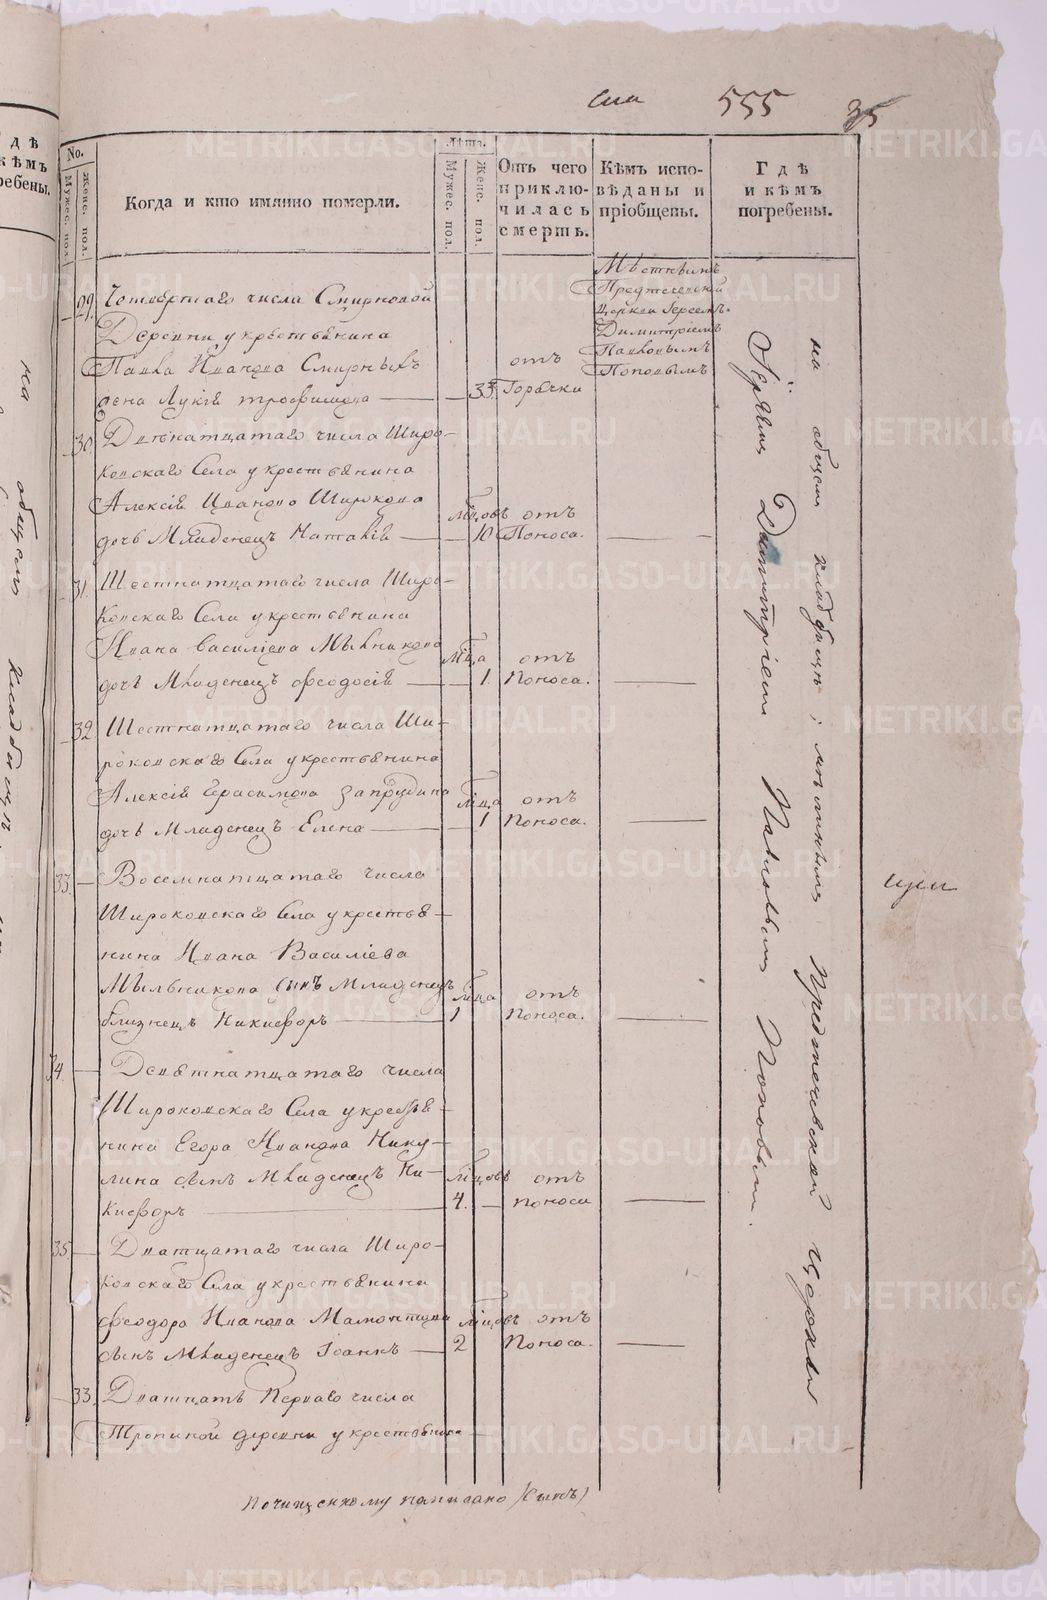 555
35
Гдѣ
кѣмъ
ребены.
No.
Мужес. пол.
Женс. пол.
Когда и кто имянно померли.
Лѣта.
Мужес. пол.
Женс. пол.
Отъ чего
приклю-
чилась
смерть.
Кѣмъ испо-
вѣданы и
пріобщены.
Гдѣ
и кѣмъ
погребены.
29. Четвертаго числа Смирновой
Деревни у крестьянина
Павла Иванова Смирныхъ
жена Лукія трофимова
33
отъ
Горячки
Мѣстнымъ
Предтечевской
Церкви Іереемъ
Димитріемъ
Павловымъ
Поповымъ
30. Двѣнатцатаго числа Широ-
ковскаго Села у крестьянина
Алексія Иванова Широкова
дочь Младенецъ Наталія
мцовъ
10
отъ
Поноса.
31. Шестнатцатаго числа Широ-
ковскаго Села у крестьянина
Ивана Василіева Мѣлникова
дочь Младенецъ Феодосія
мца
1.
отъ
Поноса.
32. Шестнатцатаго числа Ши-
роковскаго Села у крестьянина
Алексія Герасимова Запрудина
дочь Младенецъ Елена
мца
1
отъ
Поноса.
33. Восемнатцатаго числа
Широковскаго Села у крестья-
нина Ивана Василіева
Мѣльникова сынъ Младенецъ
близнецъ Никифоръ
мца
1
отъ
Поноса.
34. Девятнатцатаго числа
Широковскаго Села у крестья-
нина Егора Иванова Нику-
лина сынъ Младенецъ Ни-
кифоръ
мцовъ
4.
отъ
поноса
35. Дватцатаго числа Широ-
ковскаго Села у крестьянина
Феодора Иванова Мамонтова
сынъ Младенецъ Іоаннъ
мцовъ
2
отъ
Поноса.
33. Дватцать Перваго числа
Тропиной деревни у крестьянина
на общемъ кладбищѣ; мѣстнымъ Предтечевской церкви
Іереемъ Димитріемъ Павловымъ Поповымъ.
на общемъ кладбищѣ
По чищенному написано (сынъ)
METRIKI.GASO-URAL.RU